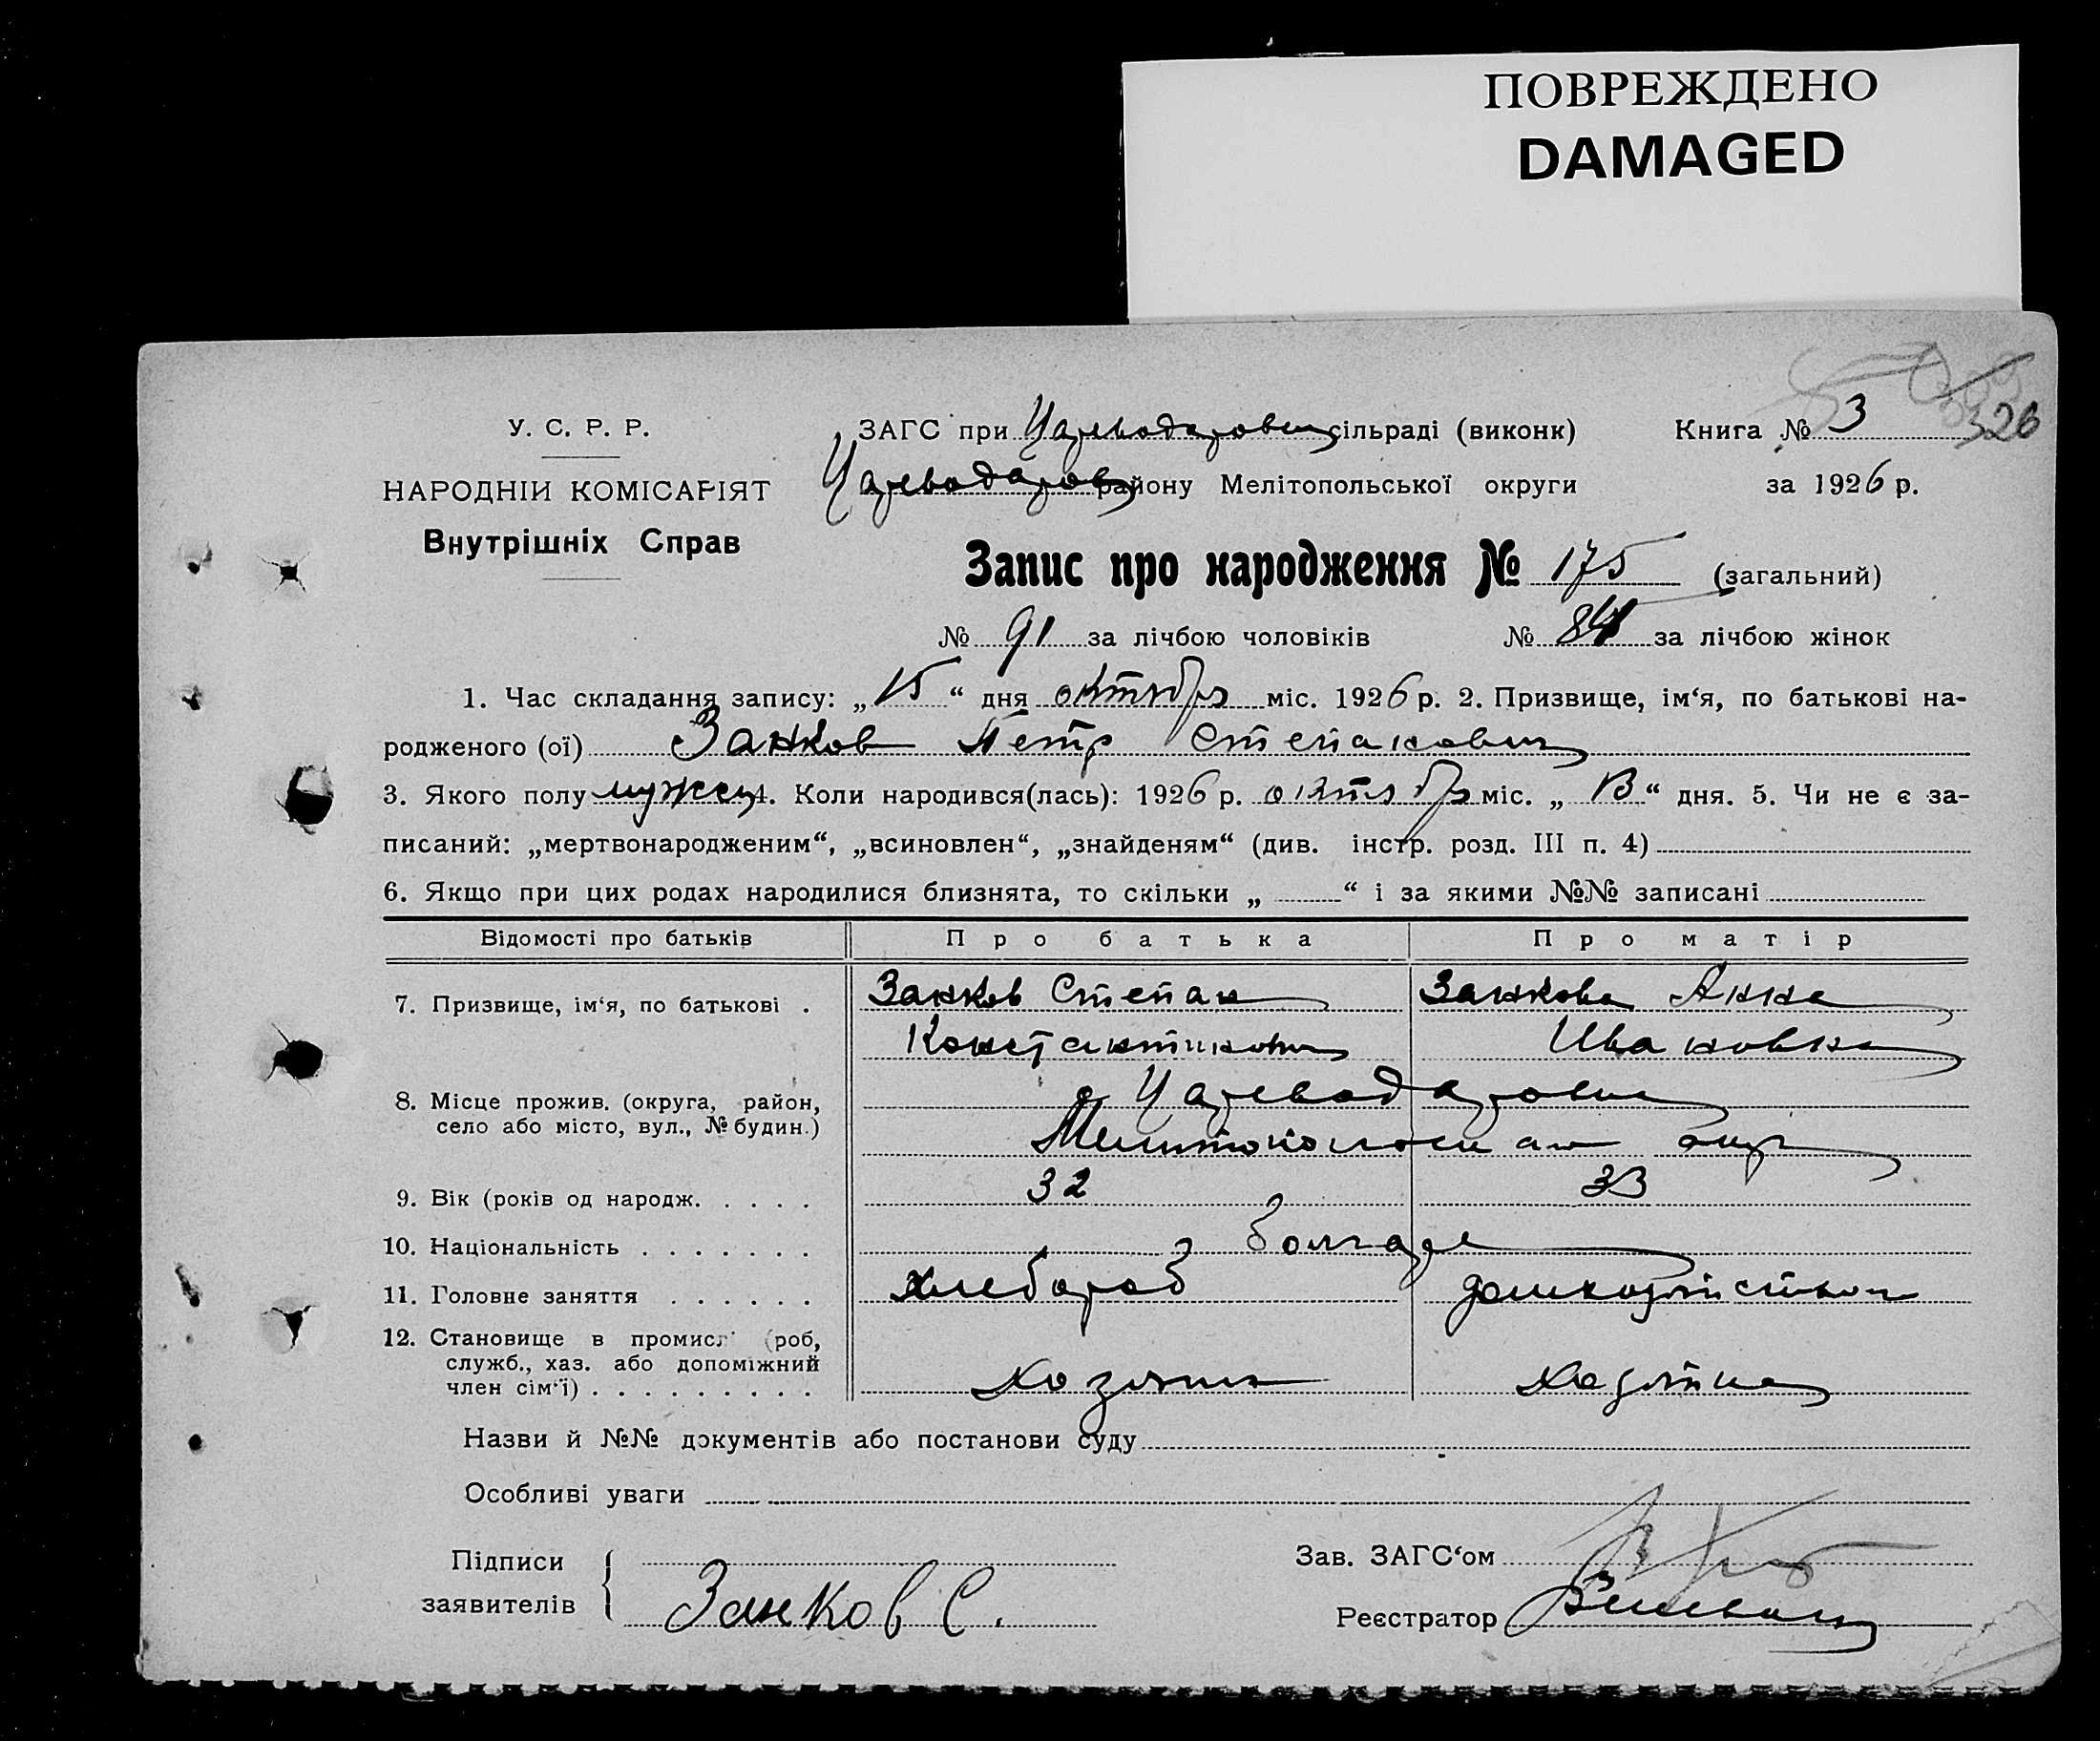 ПОВРЕЖДЕНО
DAMAGED
326
У. С. Р. Р.
НАРОДНІЙ КОМІСАРІЯТ
Внутрішніх Справ
ЗАГС при Цареводаровск сільраді (виконк)
Цареводаров району Мелітопольської округи
Книга № 3
за 1926 р.
Запис про народження № 175 (загальний)
№ 91 за лічбою чоловіків № 84 за лічбою жінок
1. Час складання запису: „15“ дня октября міс. 1926 р. 2. Призвище, ім‘я, по батькові на-
родженого (ої) Занков Петр Степанович
3. Якого полу мужск 4. Коли народився(лась): 1926 р. октября міс. „13“ дня. 5. Чи не є за-
писаний: „мертвонародженим“, „всиновлен“, „знайденям“ (див. інстр. розд. III п. 4)
6. Якщо при цих родах народилися близнята, то скільки „ “ і за якими №№ записані
Відомості про батьків Про батька Про матір
7. Призвище, ім‘я, по батькові . Занков Степан Занкова Анна
Константинович Ивановна
8. Місце прожив. (округа, район,
село або місто, вул., № будин.)
с Цареводаровка
Мелитопольск окр
9. Вік (років од народж. . . . . 32 33
10. Національність . . . . . . . болгаре
11. Головне заняття . . . . . . хлебороб
12. Становище в промисл (роб,
служб., хаз. або допоміжний
член сім‘ї) . . . . . . . . . хозяин хозяйка
Назви й №№ документів або постанови суду
Особливі уваги
Підписи
заявителів
Занков С.
Зав. ЗАГС‘ом
Реєстратор